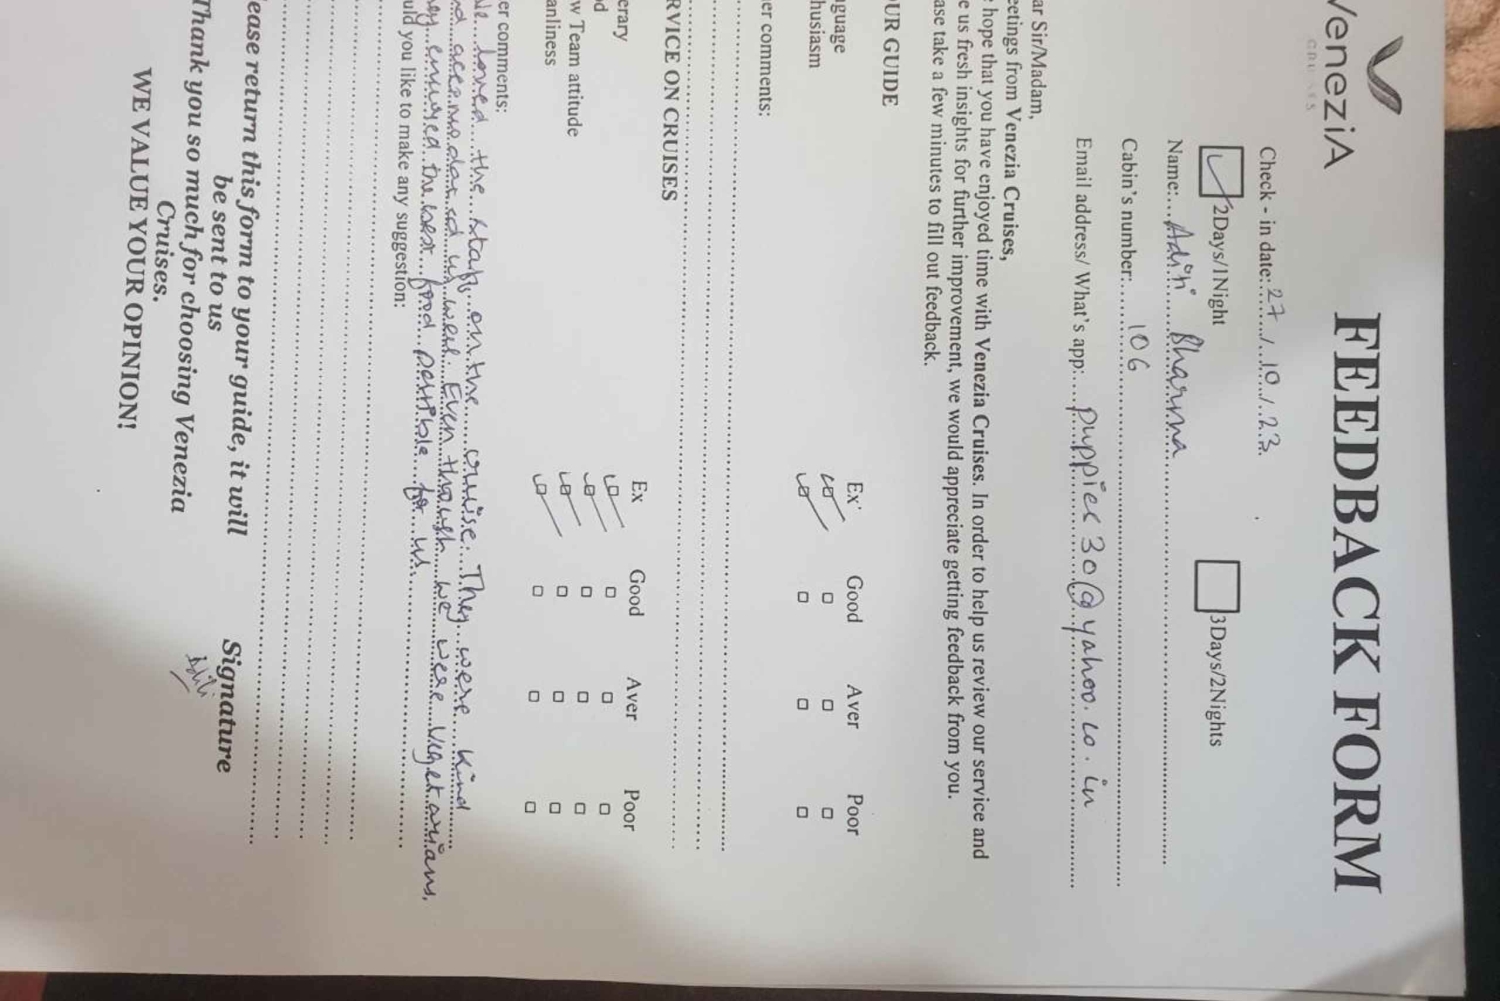 VeneziA
CRUISES
FEEDBACK FORM
Check - in date: 27 / 10 / 23
2Days/1Night 3Days/2Nights
Name: Aditi Bharma
Cabin's number: 106
Email address/ What's app: puppies30@yahoo.co.in
ar Sir/Madam,
eetings from Venezia Cruises,
hope that you have enjoyed time with Venezia Cruises. In order to help us review our service and
e us fresh insights for further improvement, we would appreciate getting feedback from you.
ase take a few minutes to fill out feedback.
UR GUIDE
Ex Good Aver Poor
guage
husiasm
er comments:
RVICE ON CRUISES
Ex Good Aver Poor
erary
d
w Team attitude
anliness
er comments:
We loved the staff on the cruise. They were kind
nd accomodated us well. Even though we were Vegetarians,
hey ensured the best food possible for us.
uld you like to make any suggestion:
ease return this form to your guide, it will
be sent to us
Thank you so much for choosing Venezia
Cruises.
WE VALUE YOUR OPINION!
Signature
Aditi